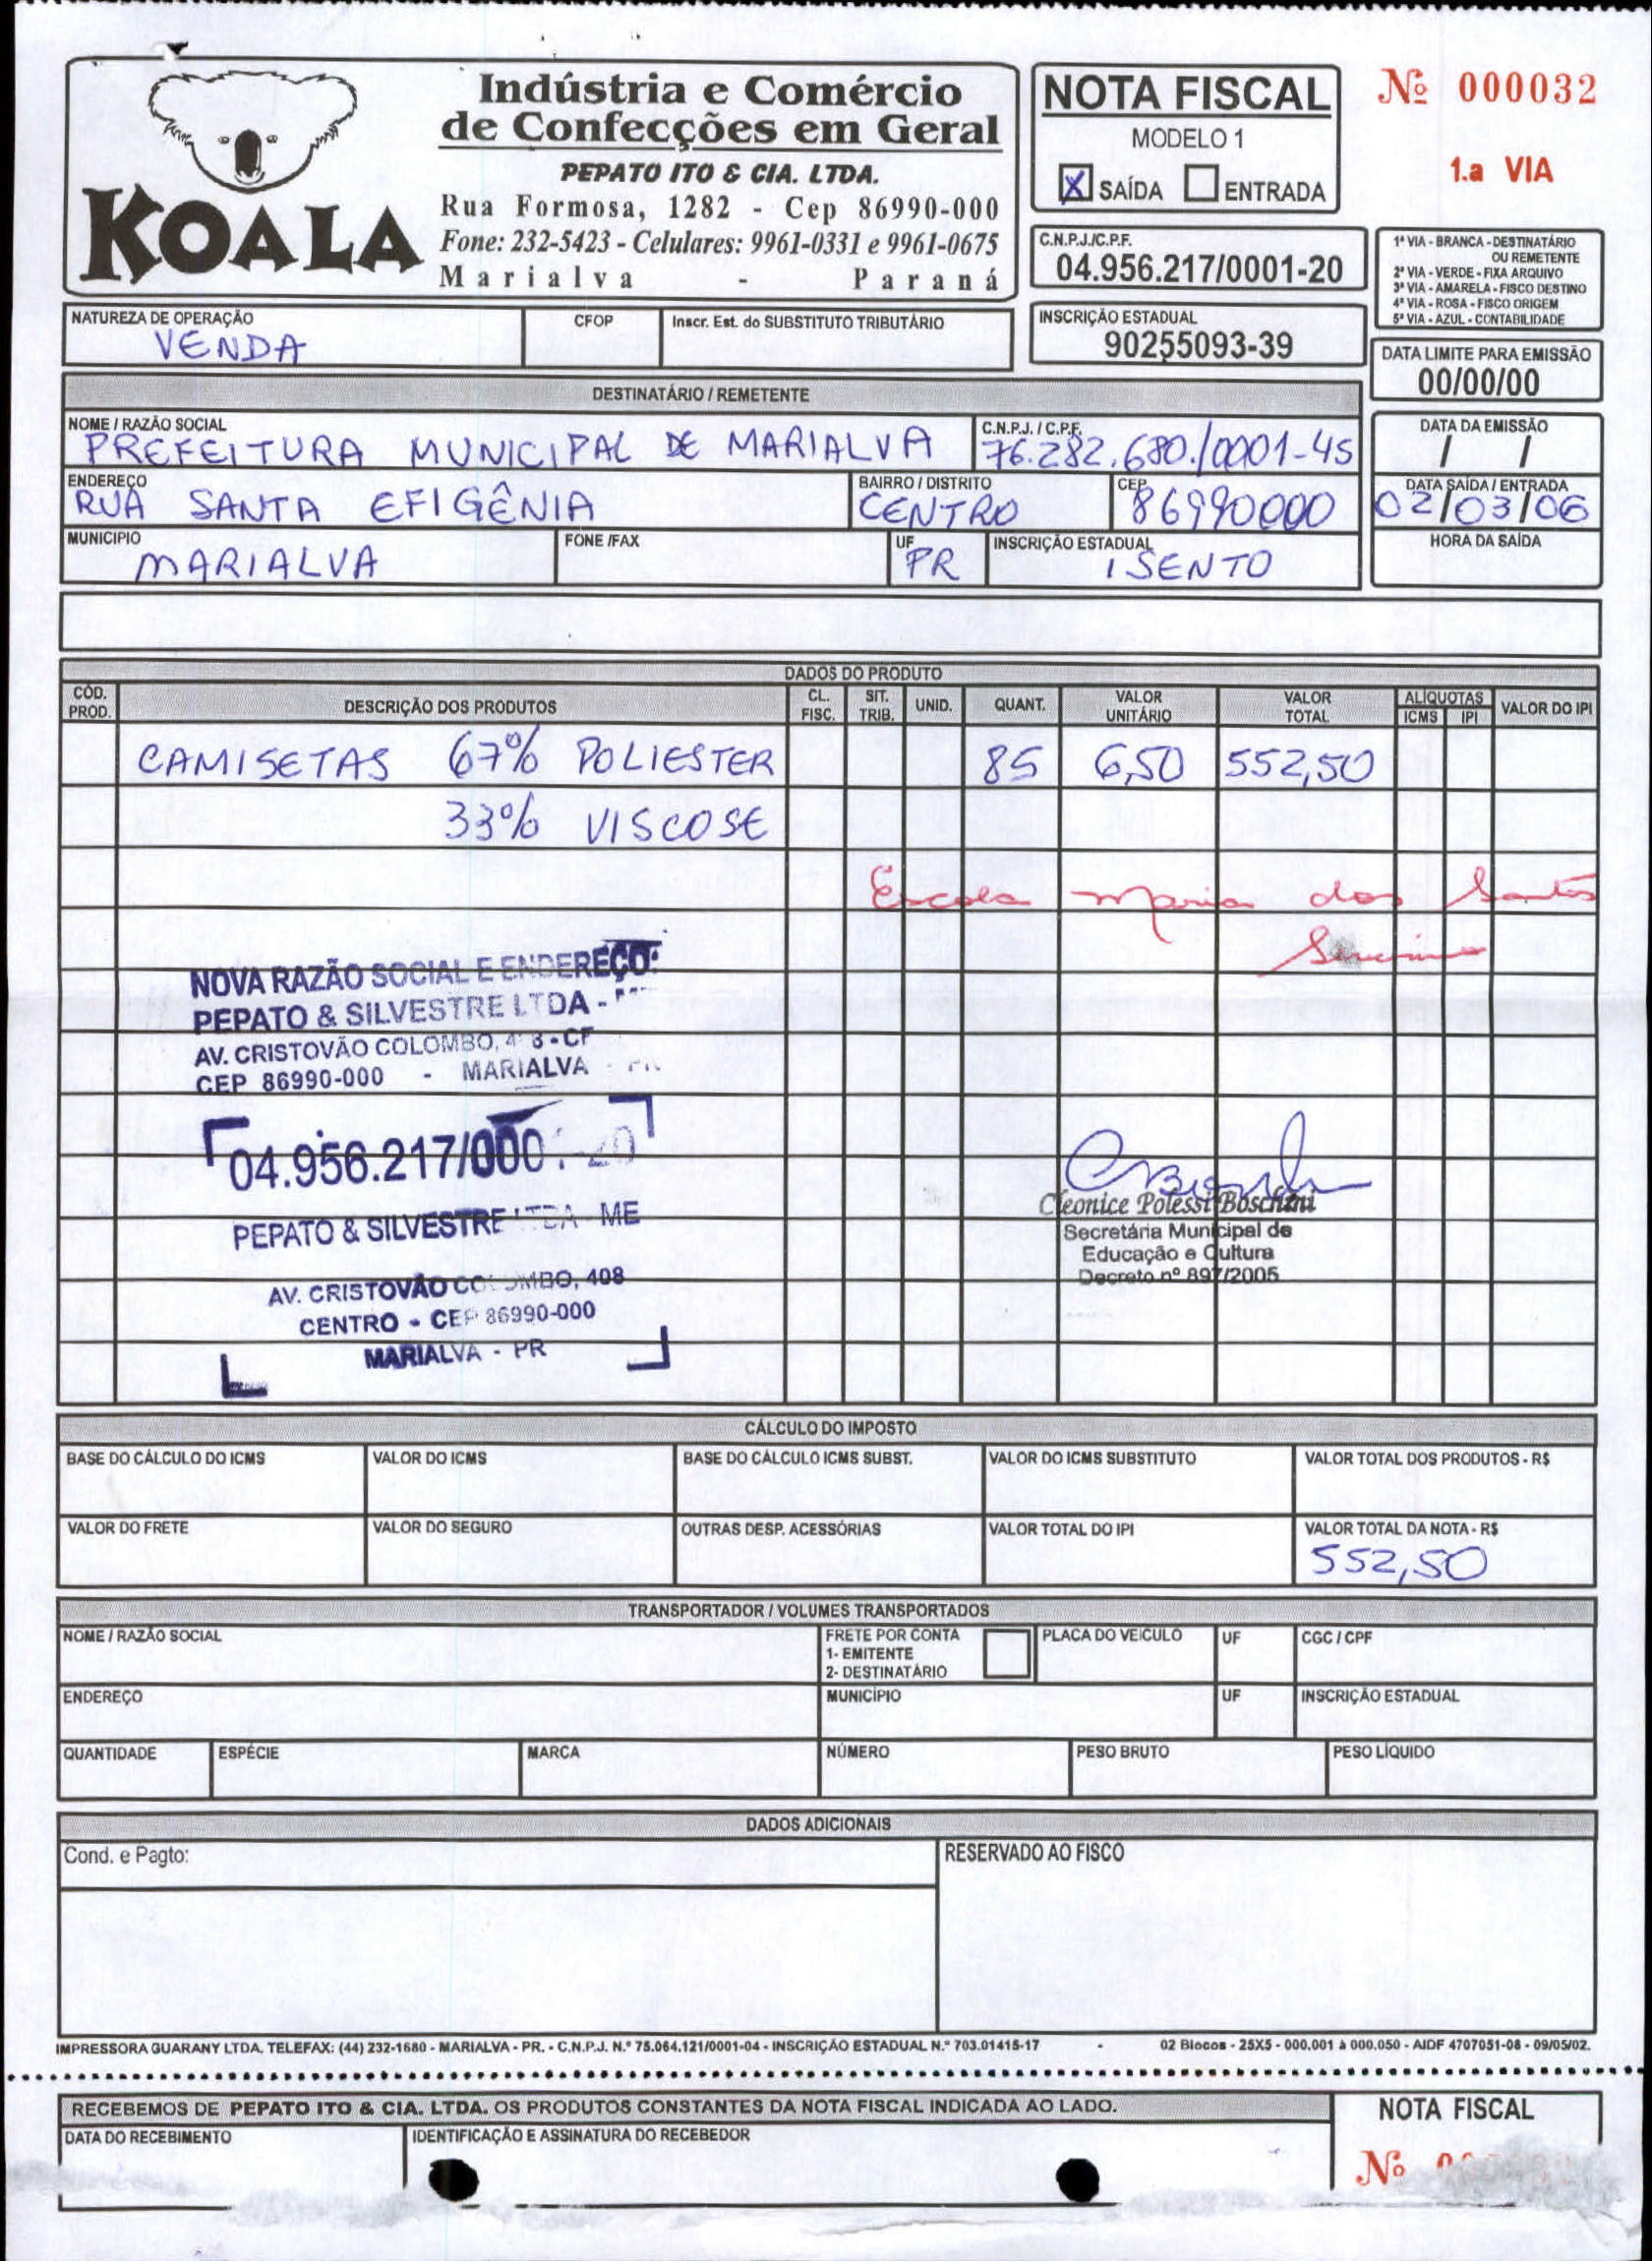 KOALA
Indústria e Comércio
de Confecções em Geral
PEPATO ITO & CIA. LTDA.
Rua Formosa, 1282 - Cep 86990-000
Fone: 232-5423 - Celulares: 9961-0331 e 9961-0675
Marialva - Paraná
NOTA FISCAL
MODELO 1
X SAÍDA ENTRADA
Nº 000032
1.a VIA
C.N.P.J./C.P.F.
04.956.217/0001-20
1ª VIA - BRANCA - DESTINATÁRIO
OU REMETENTE
2ª VIA - VERDE - FIXA ARQUIVO
3ª VIA - AMARELA - FISCO DESTINO
4ª VIA - ROSA - FISCO ORIGEM
5ª VIA - AZUL - CONTABILIDADE
NATUREZA DE OPERAÇÃO CFOP Inscr. Est. do SUBSTITUTO TRIBUTÁRIO
VENDA
INSCRIÇÃO ESTADUAL
90255093-39
DATA LIMITE PARA EMISSÃO
00/00/00
DESTINATÁRIO / REMETENTE
NOME / RAZÃO SOCIAL C.N.P.J. / C.P.F. DATA DA EMISSÃO
PREFEITURA MUNICIPAL DE MARIALVA 76.282.680./0001-45 / /
ENDEREÇO BAIRRO / DISTRITO CEP DATA SAÍDA / ENTRADA
RUA SANTA EFIGÊNIA CENTRO 86990000 02/03/06
MUNICIPIO FONE /FAX UF INSCRIÇÃO ESTADUAL HORA DA SAÍDA
MARIALVA PR ISENTO
DADOS DO PRODUTO
CÓD. PROD. DESCRIÇÃO DOS PRODUTOS CL. FISC. SIT. TRIB. UNID. QUANT. VALOR UNITÁRIO VALOR TOTAL ALÍQUOTAS ICMS IPI VALOR DO IPI
CAMISETAS 67% POLIESTER 85 6,50 552,50
33% VISCOSE
Escola Maria dos Santos
NOVA RAZÃO SOCIAL E ENDEREÇO:
PEPATO & SILVESTRE LTDA -
AV. CRISTOVÃO COLOMBO,
CEP 86990-000 - MARIALVA
04.956.217/0001-20
PEPATO & SILVESTRE LTDA - ME
AV. CRISTOVÃO COLOMBO, 408
CENTRO - CEP 86990-000
MARIALVA - PR
Cleonice Polessi Boschini
Secretária Municipal de
Educação e Cultura
Decreto nº 897/2005
CÁLCULO DO IMPOSTO
BASE DO CÁLCULO DO ICMS VALOR DO ICMS BASE DO CÁLCULO ICMS SUBST. VALOR DO ICMS SUBSTITUTO VALOR TOTAL DOS PRODUTOS - R$
VALOR DO FRETE VALOR DO SEGURO OUTRAS DESP. ACESSÓRIAS VALOR TOTAL DO IPI VALOR TOTAL DA NOTA - R$
552,50
TRANSPORTADOR / VOLUMES TRANSPORTADOS
NOME / RAZÃO SOCIAL FRETE POR CONTA PLACA DO VEICULO UF CGC / CPF
1- EMITENTE
2- DESTINATÁRIO
ENDEREÇO MUNICÍPIO UF INSCRIÇÃO ESTADUAL
QUANTIDADE ESPÉCIE MARCA NÚMERO PESO BRUTO PESO LÍQUIDO
DADOS ADICIONAIS
Cond. e Pagto: RESERVADO AO FISCO
IMPRESSORA GUARANY LTDA. TELEFAX: (44) 232-1680 - MARIALVA - PR. - C.N.P.J. N.º 75.064.121/0001-04 - INSCRIÇÃO ESTADUAL N.º 703.01415-17 - 02 Blocos - 25X5 - 000.001 à 000.050 - AIDF 4707051-08 - 09/05/02.
RECEBEMOS DE PEPATO ITO & CIA. LTDA. OS PRODUTOS CONSTANTES DA NOTA FISCAL INDICADA AO LADO.
NOTA FISCAL
DATA DO RECEBIMENTO IDENTIFICAÇÃO E ASSINATURA DO RECEBEDOR
Nº